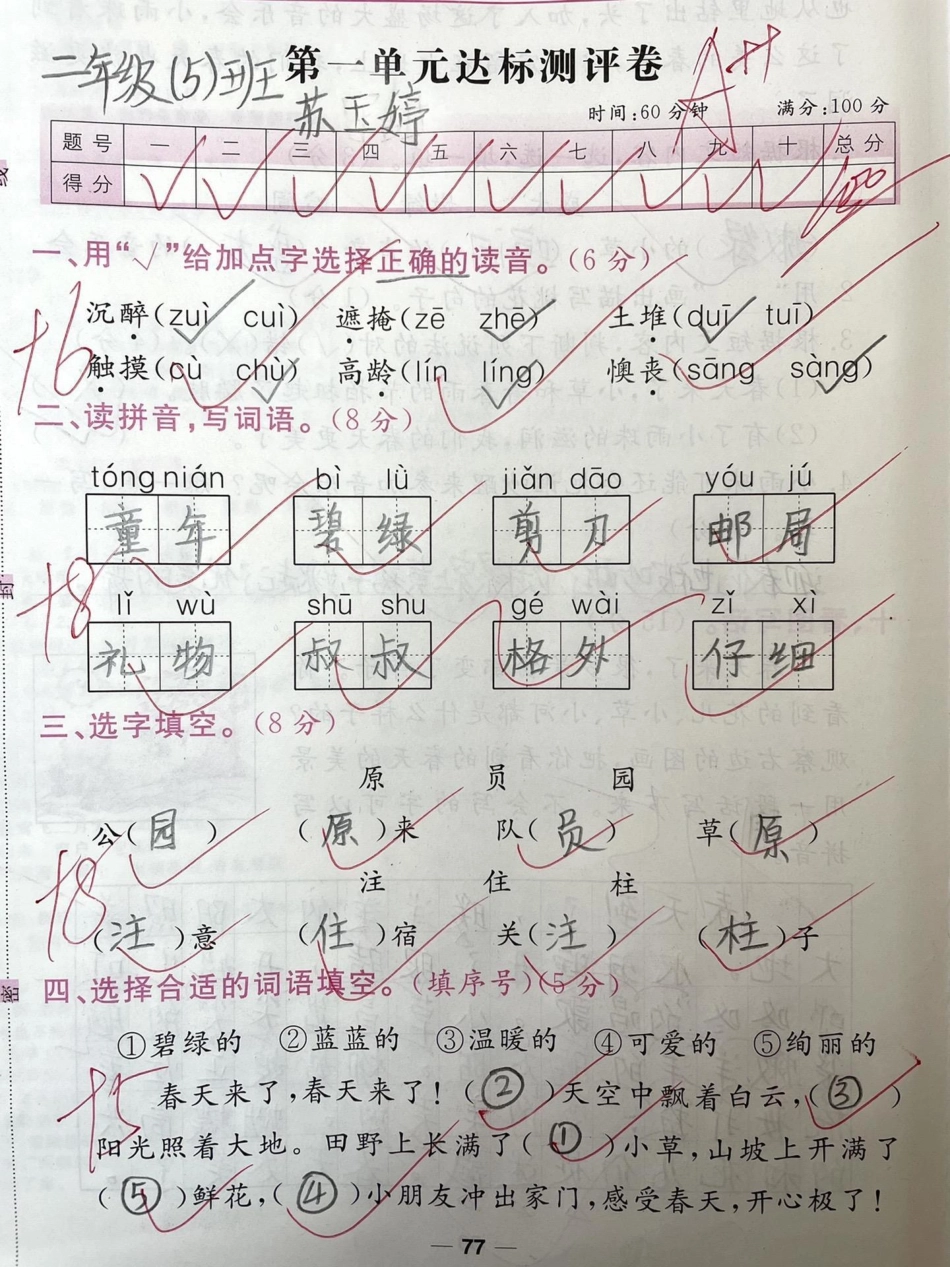 二年级(5)班 第一单元达标测评卷 A++
苏玉婷 时间:60分钟 满分:100分
题号 一 二 三 四 五 六 七 八 九 十 总分
得分 100
一、用“√”给加点字选择正确的读音。(6分)
+6
沉醉(zuì cuì) 遮掩(zē zhē) 土堆(duī tuī)
触摸(cù chù) 高龄(lín líng) 懊丧(sāng sàng)
二、读拼音,写词语。(8分)
tóng nián bì lǜ jiǎn dāo yóu jú
童年 碧绿 剪刀 邮局
+8
lǐ wù shū shu gé wài zǐ xì
礼物 叔叔 格外 仔细
三、选字填空。(8分)
原 员 园
公(园) (原)来 队(员) 草(原)
+8
注 住 柱
(注)意 (住)宿 关(注) (柱)子
四、选择合适的词语填空。(填序号)(5分)
①碧绿的 ②蓝蓝的 ③温暖的 ④可爱的 ⑤绚丽的
+5
春天来了,春天来了!(②)天空中飘着白云,(③)
阳光照着大地。田野上长满了(①)小草,山坡上开满了
(⑤)鲜花,(④)小朋友冲出家门,感受春天,开心极了!
— 77 —